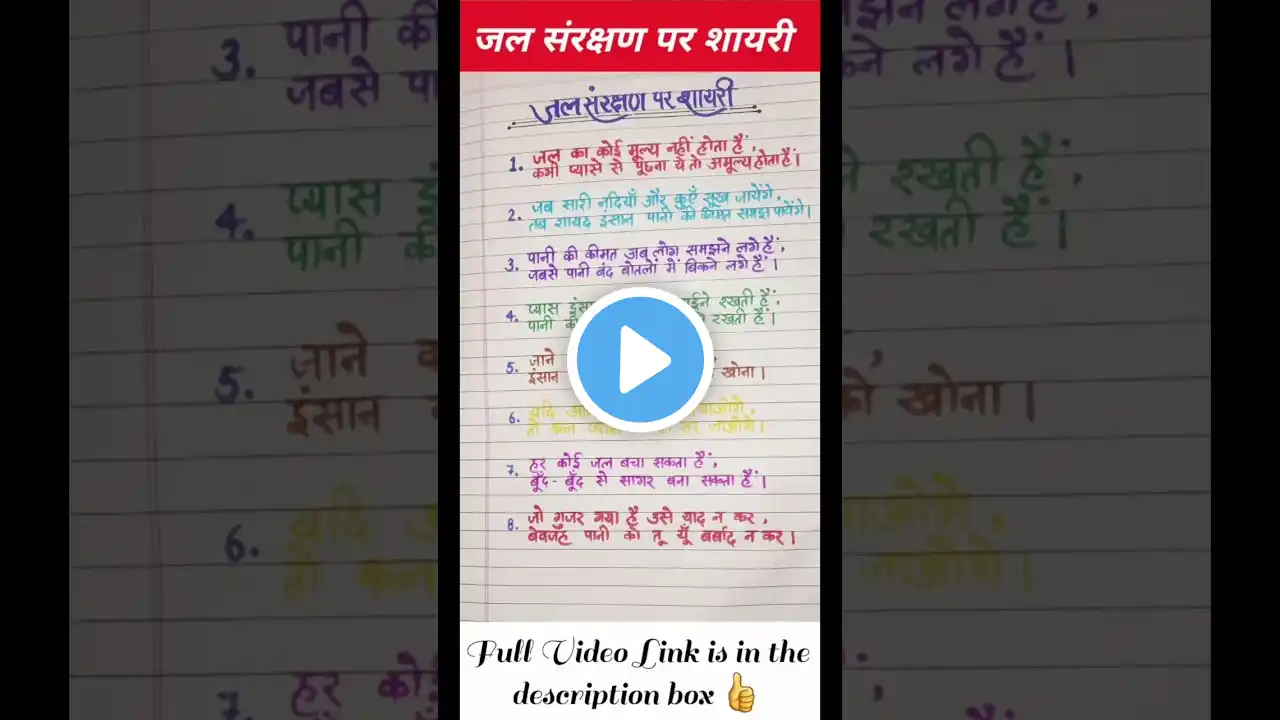 जल संरक्षण पर शायरी
जल संरक्षण पर शायरी
1. जल का कोई मूल्य नहीं होता हैं,
कभी प्यासे से पूछना ये तो अमूल्य होता हैं।
2. जब सारी नदियाँ और कुएँ सूख जायेंगे,
तब शायद इंसान पानी की कीमत समझ पायेंगे।
3. पानी की कीमत अब लोग समझने लगे हैं,
जबसे पानी बंद बोतलों में बिकने लगे हैं।
4. प्यास रखती हैं,
पानी की रखती हैं।
5. जाने
इंसान खोना।
6. यदि
तो कल जाओगे।
7. हर कोई जल बचा सकता हैं,
बूँद-बूँद से सागर बना सकता हैं।
8. जो गुजर गया है उसे याद न कर,
बेवजह पानी को तू यूँ बर्बाद न कर।
Full Video Link is in the
description box
3. पानी की
जबसे
लगे हैं,
लगे हैं।
4. प्यास
पानी की
रखती हैं,
रखती हैं।
5. जाने
इंसान
को खोना।
6. यदि
तो कल
जाओगे।
7. हर कोई